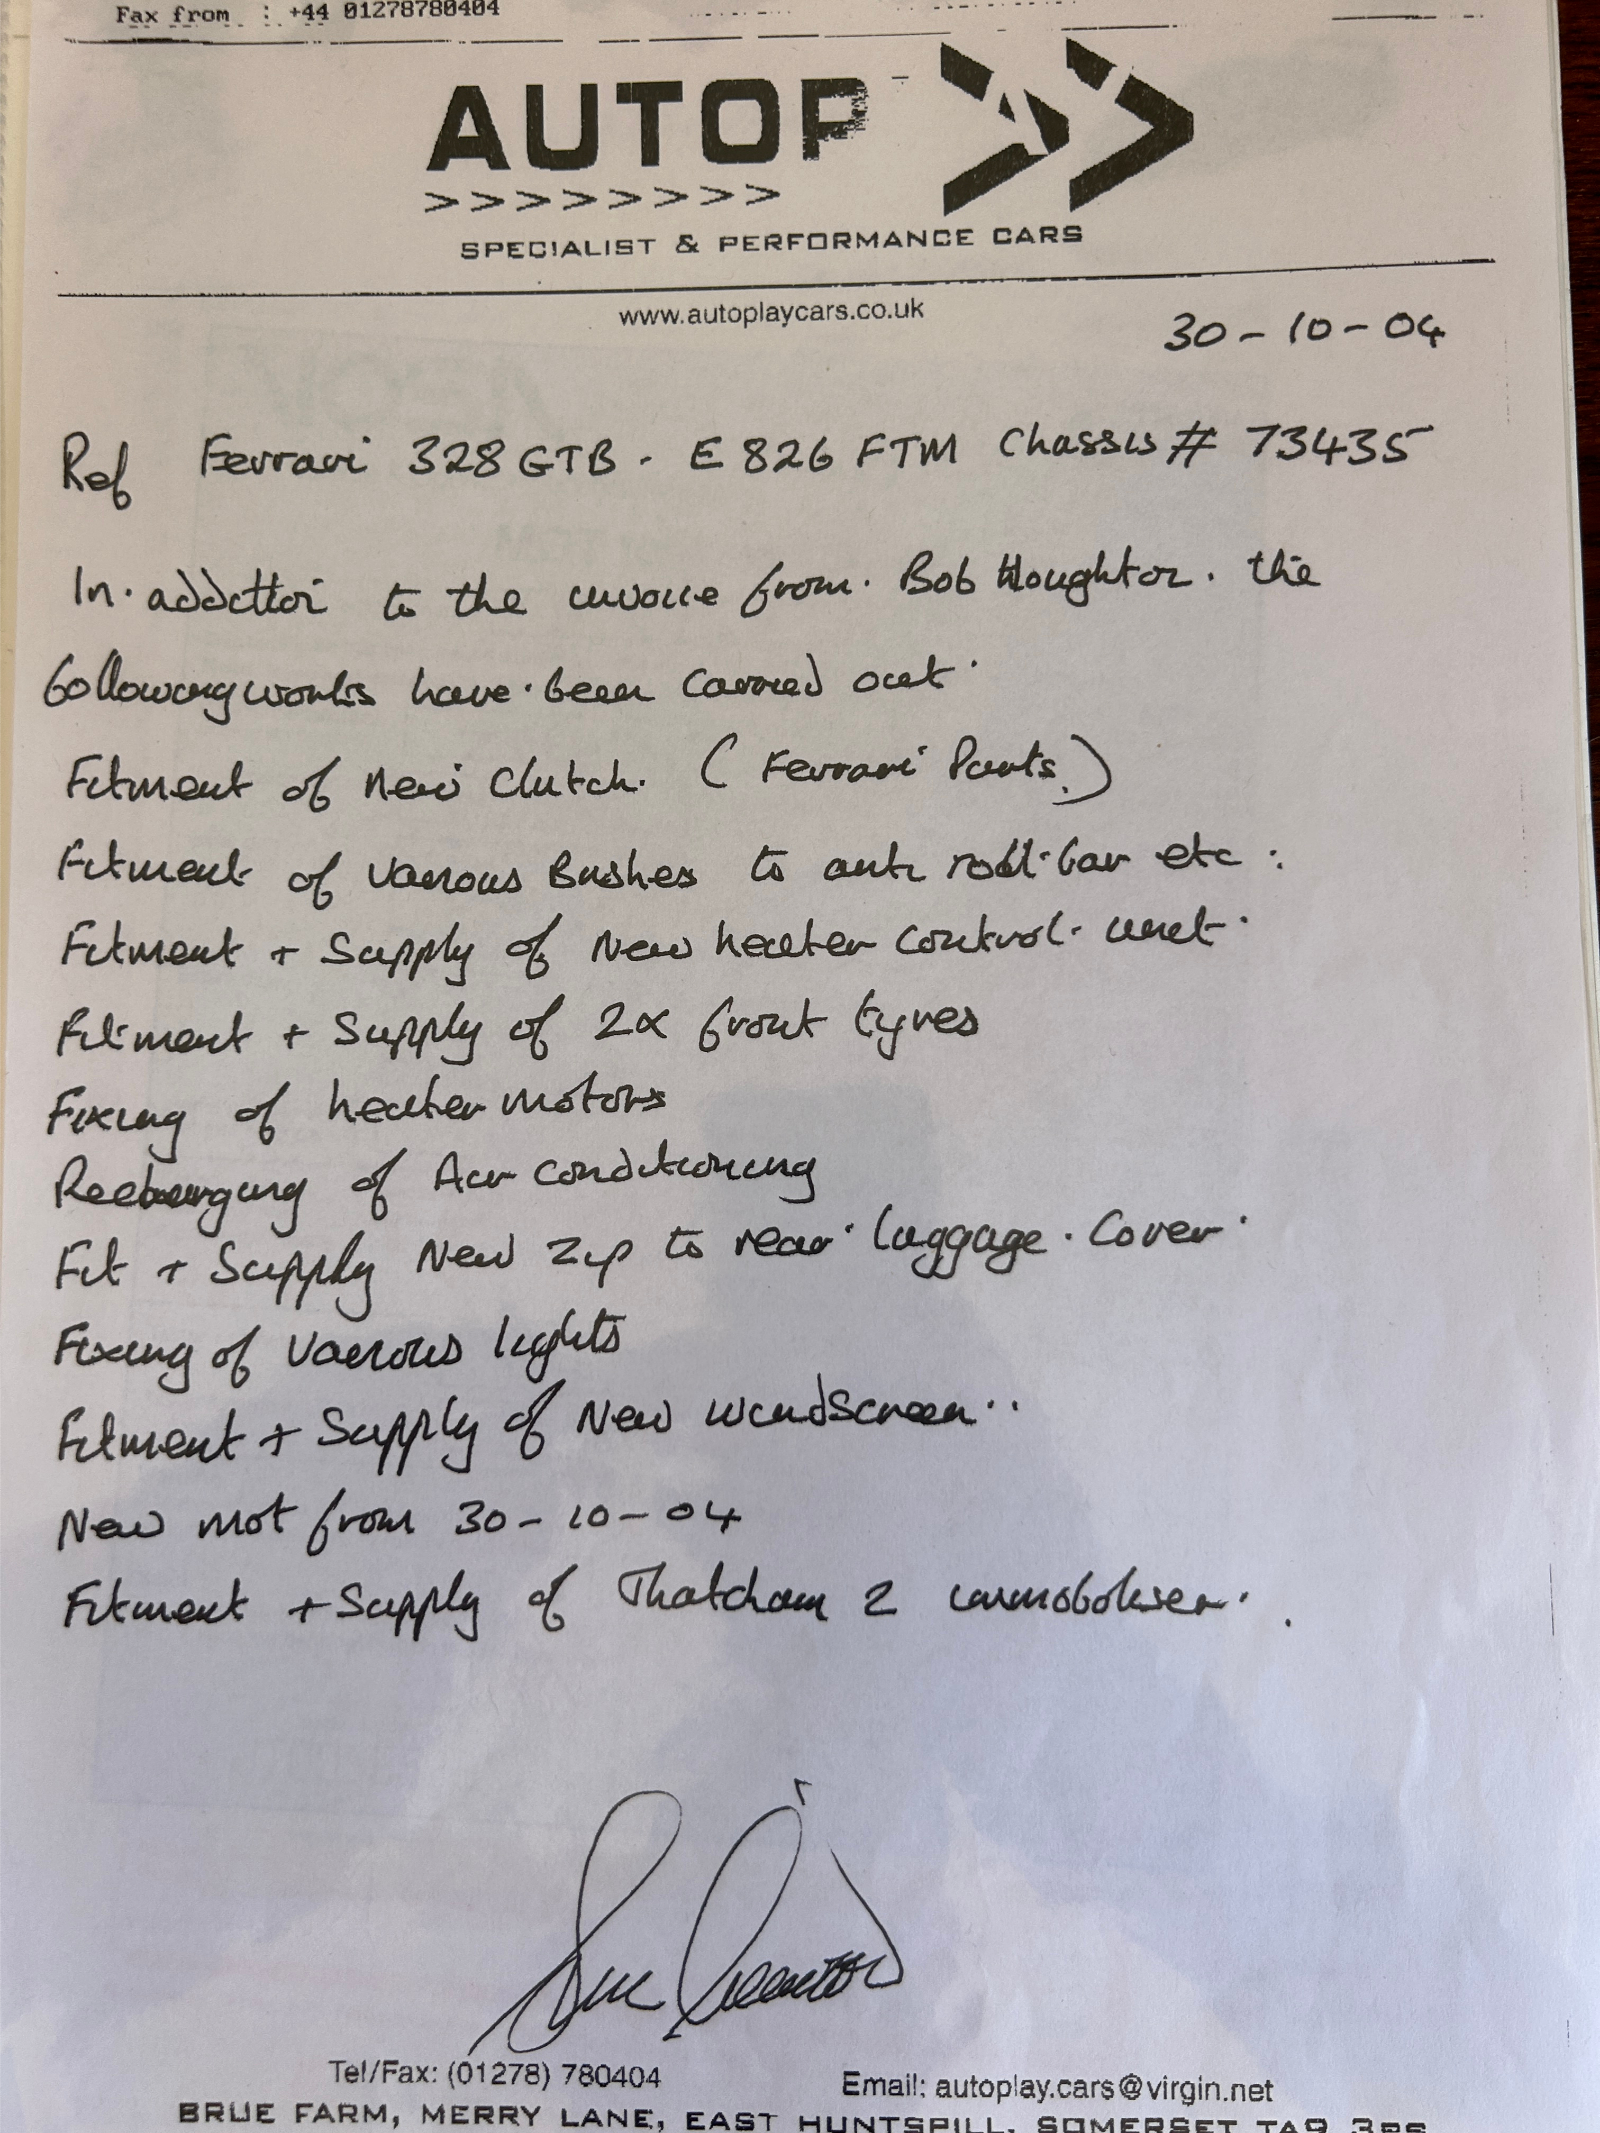 Fax from : +44 01278780404
AUTOP
>>>>>>>>
SPECIALIST & PERFORMANCE CARS
www.autoplaycars.co.uk
30-10-04
Ref Ferrari 328 GTB - E 826 FTM Chassis # 73435
In addition to the invoice from Bob Houghton. the
following works have been carried out.
Fitment of New Clutch. (Ferrari Parts.)
Fitment of various Bushes to anti roll bar etc.
Fitment + Supply of New heater control unit.
Fitment + Supply of 2x front tyres
Fixing of heater motors
of Air conditioning
Fit + Supply New Zip to rear luggage cover.
Fixing of various lights
Fitment + Supply of New windscreen..
New mot from 30-10-04
Fitment + Supply of Thatcham 2 immoboliser.
Tel/Fax: (01278) 780404
Email: autoplay.cars@virgin.net
BRUE FARM, MERRY LANE, EAST HUNTSPILL, SOMERSET TA9 3PS